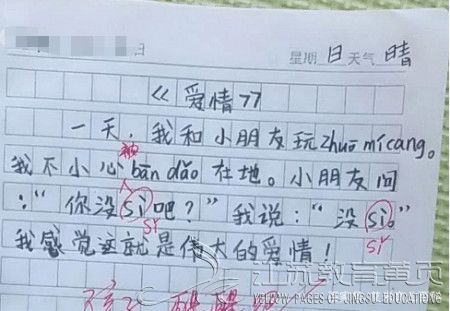 日 星期 日 天气 晴
《爱情》
一天，我和小朋友玩zhuō mícang。
我不小心被bān dǎo在地。小朋友问
：“你没sì吧？”我说：“没sì。”
sǐ sǐ
我感觉这就是伟大的爱情！
江苏教育黄页
YELLOW PAGES OF JINGSU EDUCATIONS